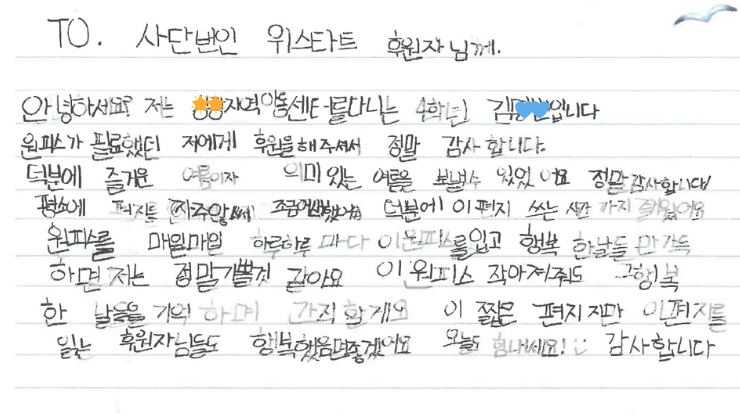 TO. 사단법인 위스타트 후원자님께.
안녕하세요? 저는 지역아동센터를다니는 4학년 김입니다
원피스가 필료했던 저에게 후원을해주셔서 정말 감사합니다.
덕분에 즐거운 여름이자 의미있는 여름을 보낼수 있었어요 정말감사합니다!
평소에 편지를 자주않써 덕분에 이편지 쓰는 시간 가지
원피스를 매일매일 하루하루 마다 이원피스를입고 행복 한날들 만가득
하면 저는 정말기쁠것 같아요 이 원피스 작아져줘도 그행복
한 날들을 기억하며 간직할게요 이 짧은 편지지만 이편지를
읽는 후원자님들도 행복했음며좋겠어요 오늘도 힘내세요! :) 감사합니다